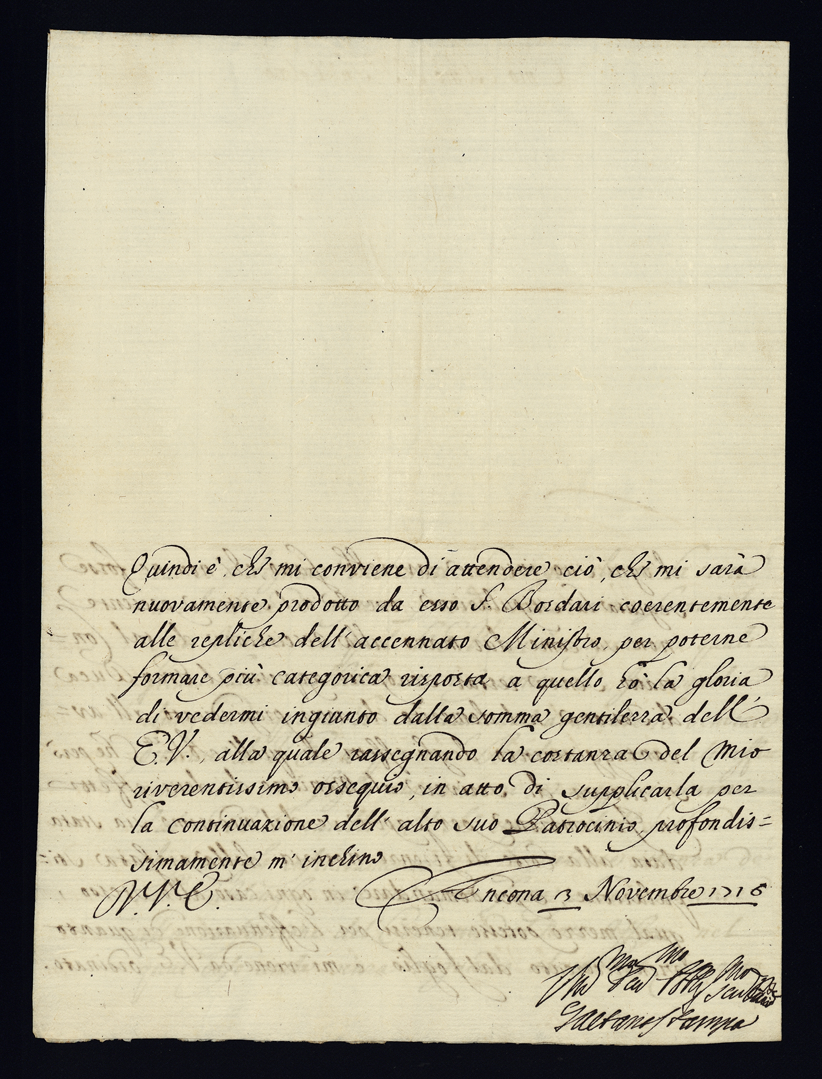 Quindi è, che mi conviene di attendere ciò, che mi sarà
nuovamente prodotto da esso S.r Bordari coerentemente
alle repliche dell'accennato Ministro, per poterne
formare più categorica risposta a quello, hò la gloria
di vedermi ingianto dalla somma gentilezza dell'
E.V., alla quale rassegnando la costanza del mio
riverentissimo ossequio, in atto di supplicarla per
la continuazione dell'alto suo Patrocinio, profondis=
simamente m'inchino
V.V.E.
Ancona 3 Novembre 1716
Gaetano Stampa